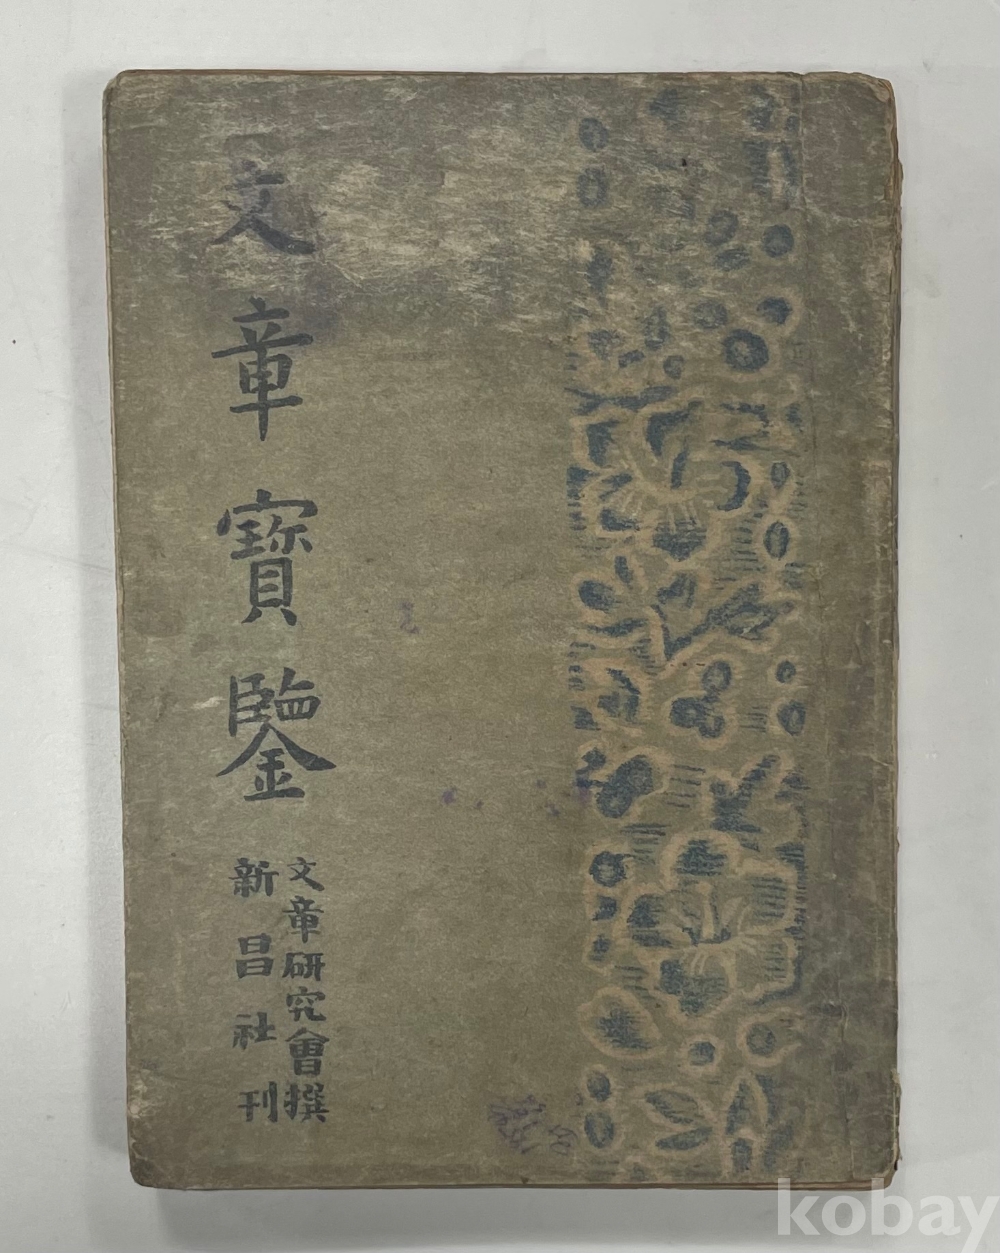 文章寶鑒
文章硏究會撰
新昌社刊
kobay